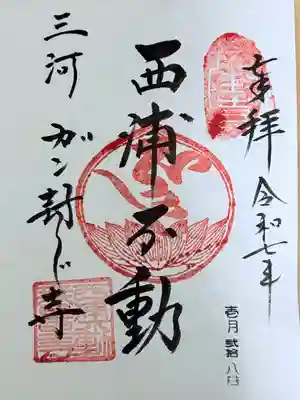 奉拝
令和七年
壱月 弐拾八日
西浦不動
三河 ガン封じ寺